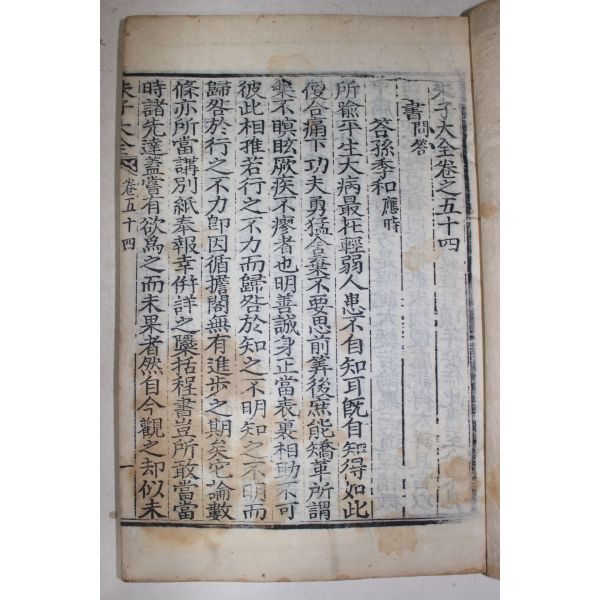 朱子大全卷之五十四
書問答
答孫季和應時
所喩平生大病最在輕弱人患不自知耳旣自知得如此
便合痛下功夫勇猛舍棄不要思前筭後庶能矯革所謂
藥不瞑眩厥疾不瘳者也明善誠身正當表裏相助不可
彼此相推若行之不力而歸咎於知之不明知之不明而
歸咎於行之不力卽因循擔閣無有進步之期矣它論數
條亦所當講別紙奉報幸倂詳之櫽括程書豈所敢當當
時諸先達蓋嘗有欲爲之而未果者然自今觀之却似未
朱子大全 卷五十四 一